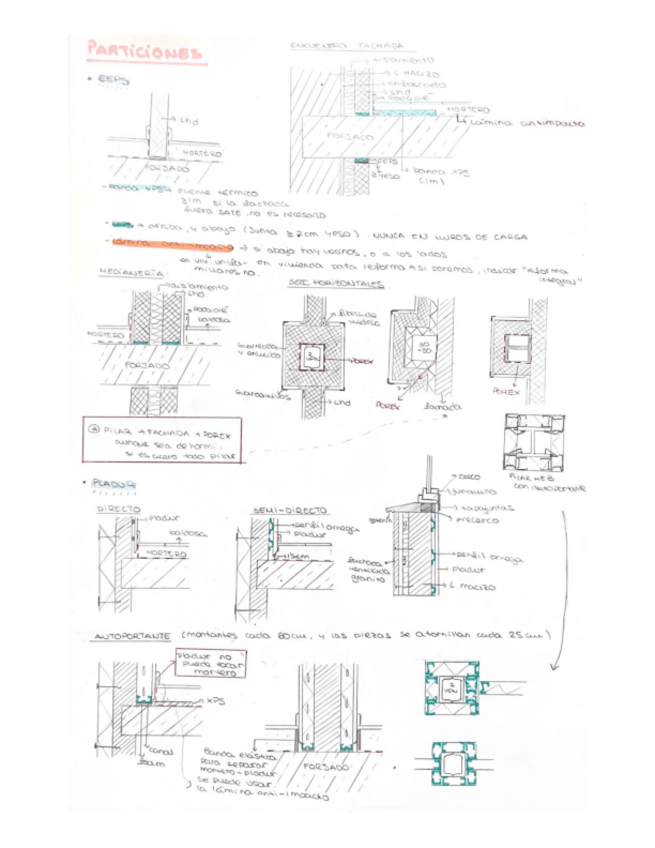 PARTICIONES
ENCUENTRO FACHADA
• EEPS
Lhd
MORTERO
FORSADO
aislamiento
L MACIZO
enfoscado
Lhd
rodapié
MORTERO
Lámina antimpacto
FORSADO
EEPS
2 YESO
banda XPS
(1m)
- Banda XPS → puente térmico
si la fachada
fuera SATE no es necesario
- EEPS → arriba y abajo (Junta ≥ 2cm yeso). NUNCA EN MUROS DE CARGA
- Lámina anti-impacto → si abajo hay vecinos, o a los lados
en viv. unifa- en vivienda para reforma → si ponemos, indicar "reforma
miliares no. integral"
MEDIANERÍA
aislamiento
Lhd.
Rodapié
baldosa
MORTERO
FORJADO
SECC HORIZONTALES
fibra de
vidrio
Guarnecido
y enlucido
POREX
Guardavivos
Lhd
POREX
fachada
POREX
* PILAR → FACHADA → POREX
aunque sea de hormi.
si es acero todo pilar
PILAR HEB
con autoportante
• PLADUR
DIRECTO
pladur
baldosa
MORTERO
SEMI-DIRECTO
perfil omega
pladur
15cm
cerco
junquillo
tapajuntas
precerco
perfil omega
pladur
L. macizo
fachada
ventilada
granito
AUTOPORTANTE (montantes cada 60cm, y las piezas se atornillan cada 25cm)
pladur no
puede tocar
mortero
XPS
canal
Banda elástica
para separar
mortero-pladur
se puede usar
la lámina anti-impacto
FORSADO